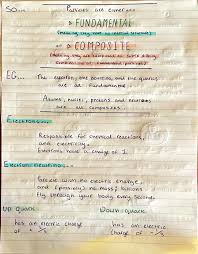 SO... Particles are either...
→ FUNDAMENTAL
(meaning they have no internal structure)
or
→ COMPOSITE
(meaning they are
fundamental parts)
EG... The electron, the neutrino, and the quarks
are all FUNDAMENTAL.
Atoms, nuclei, protons and neutrons
are all COMPOSITES.
Electrons...
Responsible for chemical reactions,
and electricity.
Electrons have a charge of 1.
Electron neutrino...
Particle with no electric charge,
and (Possibly) no mass; billions
fly through your body every second.
UP quark: Down quark:
has an electric has an electric
charge of + 2/3 charge of - 1/3